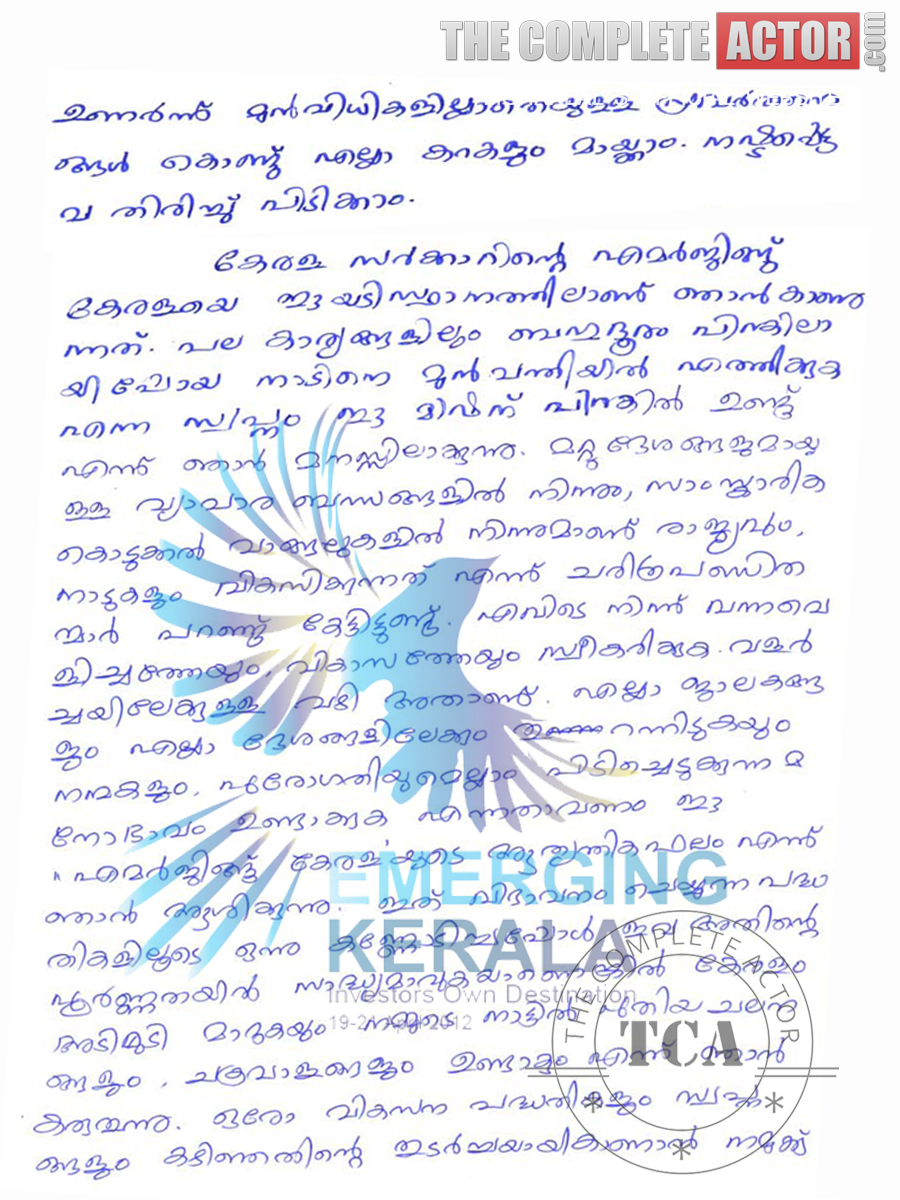 THE COMPLETE ACTOR .com
ഉണർന്ന് മുൻവിധികളില്ലാതെയുള്ള പ്രവർത്തന
ങ്ങൾ കൊണ്ടു് എല്ലാ കറകളും മായ്ക്കാം. നഷ്ടപ്പെട്ട
വ തിരിച്ചു് പിടിക്കാം.
കേരള സർക്കാറിന്റെ എമർജിങ്ങ്
കേരളയെ ഈയടിസ്ഥാനത്തിലാണ് ഞാൻ കാണു
ന്നത്. പല കാര്യങ്ങളിലും ബഹുദൂരം പിന്നിലാ
യിപ്പോയ നാടിനെ മുൻപന്തിയിൽ എത്തിക്കുക
എന്ന സ്വപ്നം ഈ മിഷന് പിന്നിൽ ഉണ്ട്
എന്ന് ഞാൻ മനസ്സിലാക്കുന്നു. മറ്റു ദേശങ്ങളുമായു
ള്ള വ്യാപാര ബന്ധങ്ങളിൽ നിന്നും, സാംസ്കാരിക
കൊടുക്കൽ വാങ്ങലുകളിൽ നിന്നുമാണ് രാജ്യവും,
നാടുകളും വികസിക്കുന്നത് എന്ന് ചരിത്രപണ്ഡിത
ന്മാർ പറഞ്ഞു് കേട്ടിട്ടുണ്ട്. എവിടെ നിന്ന് വന്നവെ
ളിച്ചത്തേയും, വികാസത്തേയും സ്വീകരിക്കുക. വളർ
ച്ചയിലേക്കുള്ള വഴി അതാണ്. എല്ലാ ജാലകങ്ങ
ളും എല്ലാ ദേശങ്ങളിലേക്കും തുറന്നിട്ടുകയും
നന്മകളും, പുരോഗതിയുമെല്ലാം പിടിച്ചെടുക്കുന്ന മ
നോഭാവം ഉണ്ടാക്കുക എന്നതാവണം ഈ
"എമർജിങ്ങ് കേരള'യുടെ ആത്യന്തികഫലം എന്ന്
ഞാൻ ആശിക്കുന്നു. ഇത് വിഭാവനം ചെയ്യുന്ന പദ്ധ
തികളിലൂടെ ഒന്നു കണ്ണോടിച്ചപ്പോൾ ഇവ അതിന്റെ
പൂർണ്ണതയിൽ സാദ്ധ്യമാവുകയാണെങ്കിൽ കേരളം
അടിമുടി മാറുകയും നമ്മുടെ നാട്ടിൽ പുതിയ ചലന
ങ്ങളും, ചക്രവാളങ്ങളും ഉണ്ടാകും എന്ന് ഞാൻ
കരുതുന്നു. ഒരോ വികസന പദ്ധതികളും സ്വപ്ന
ങ്ങളും കഴിഞ്ഞതിന്റെ തുടർച്ചയായികാണാൻ നമുക്ക്
EMERGING
KERALA
Investors Own Destination
19-21 April 2012
THE COMPLETE ACTOR
TCA